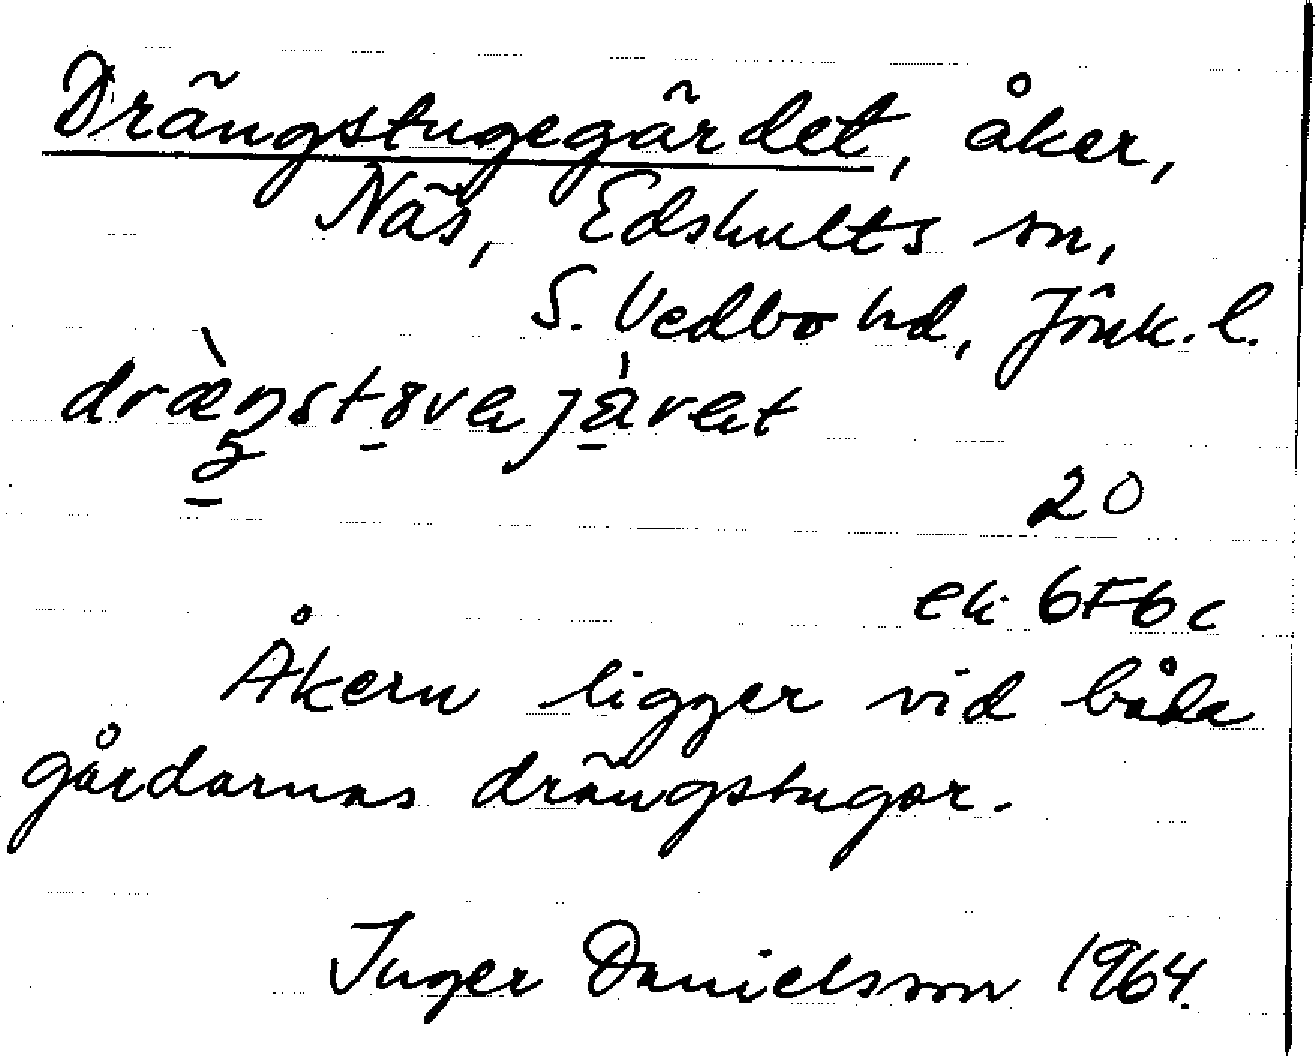 Drängstugegärdet, åker,
Näs, Edshults sn,
S. Vedbo hd, Jönk. l.
20
ek 6F6c
Åkern ligger vid båda
gårdarnas drängstugor.
Inger Danielsson 1964.